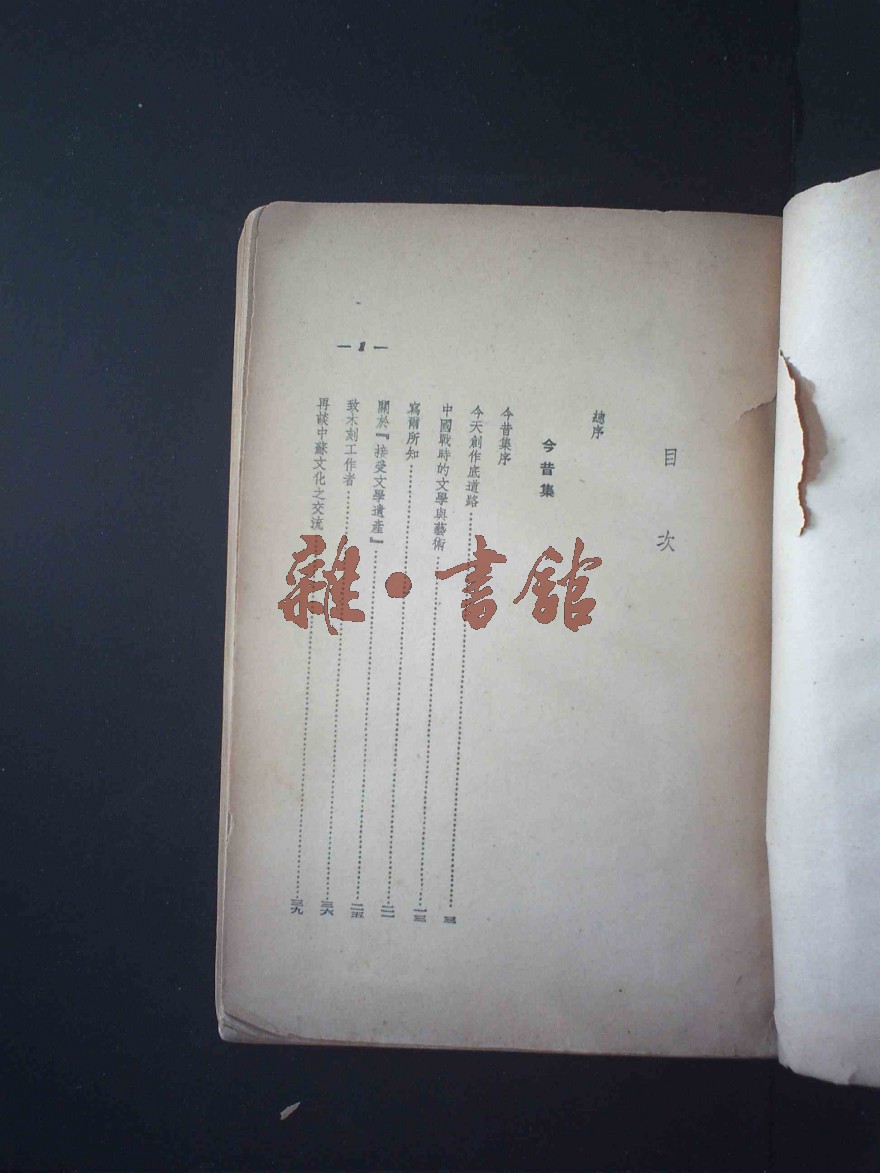 目次
總序
今昔集
今昔集序
今天創作底道路……三
中國戰時的文學與藝術……一三
寫爾所知……二一
關於『接受文學遺產』……二五
致木刻工作者……三六
再談中蘇文化之交流……三九
— 1 —
雜·書館